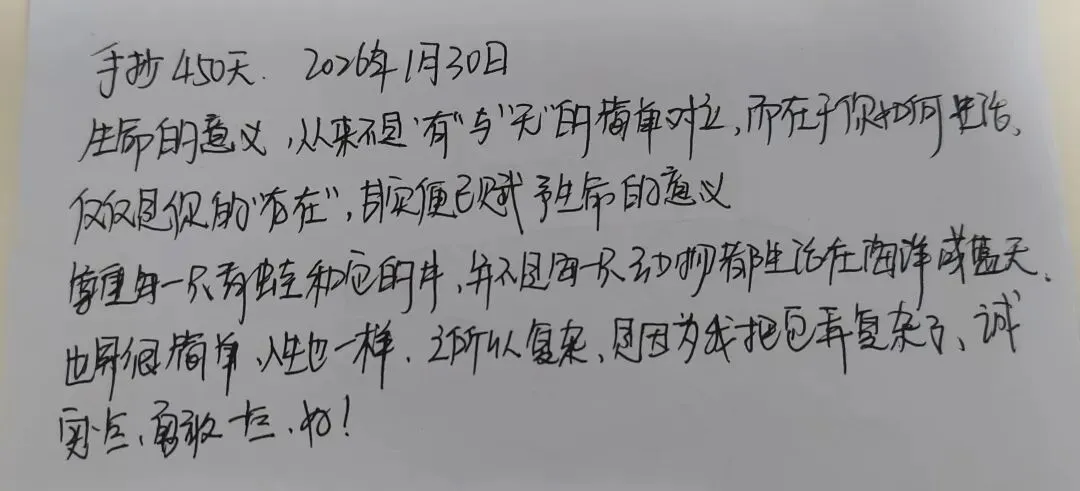 手抄450天. 2026年1月30日
生命的意义,从来不是"有"与"无"的简单对立,而在于你如何生活、
仅仅是你的"存在",其实便已赋予生命的意义
尊重每一只青蛙和它的井,并不是每一只动物都生活在海洋或蓝天、
世界很简单,人生也一样.之所以复杂、是因为我把它弄复杂了、诚
实点、勇敢一点、好!